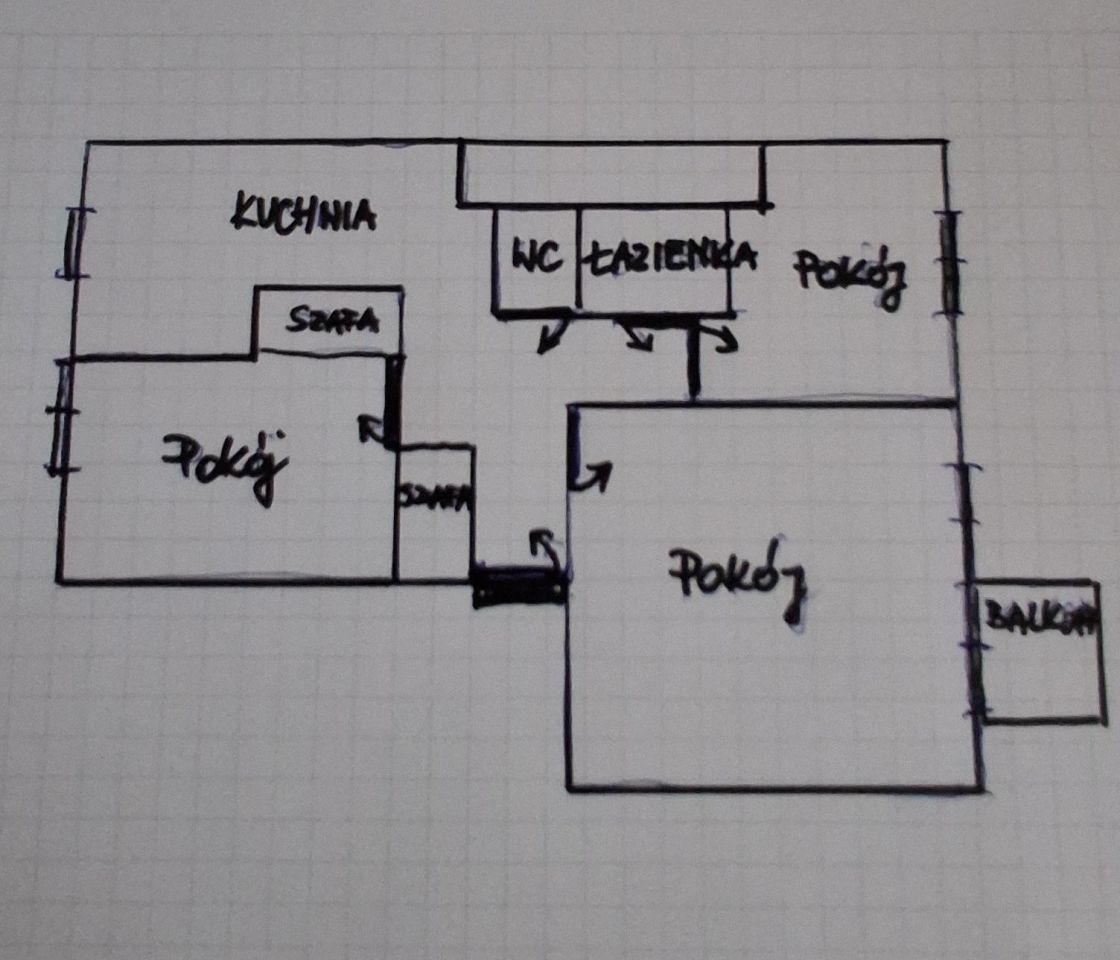 KUCHNIA
WC
ŁAZIENKA
Pokój
SZAFA
Pokój
SZAFA
Pokój
BALKON